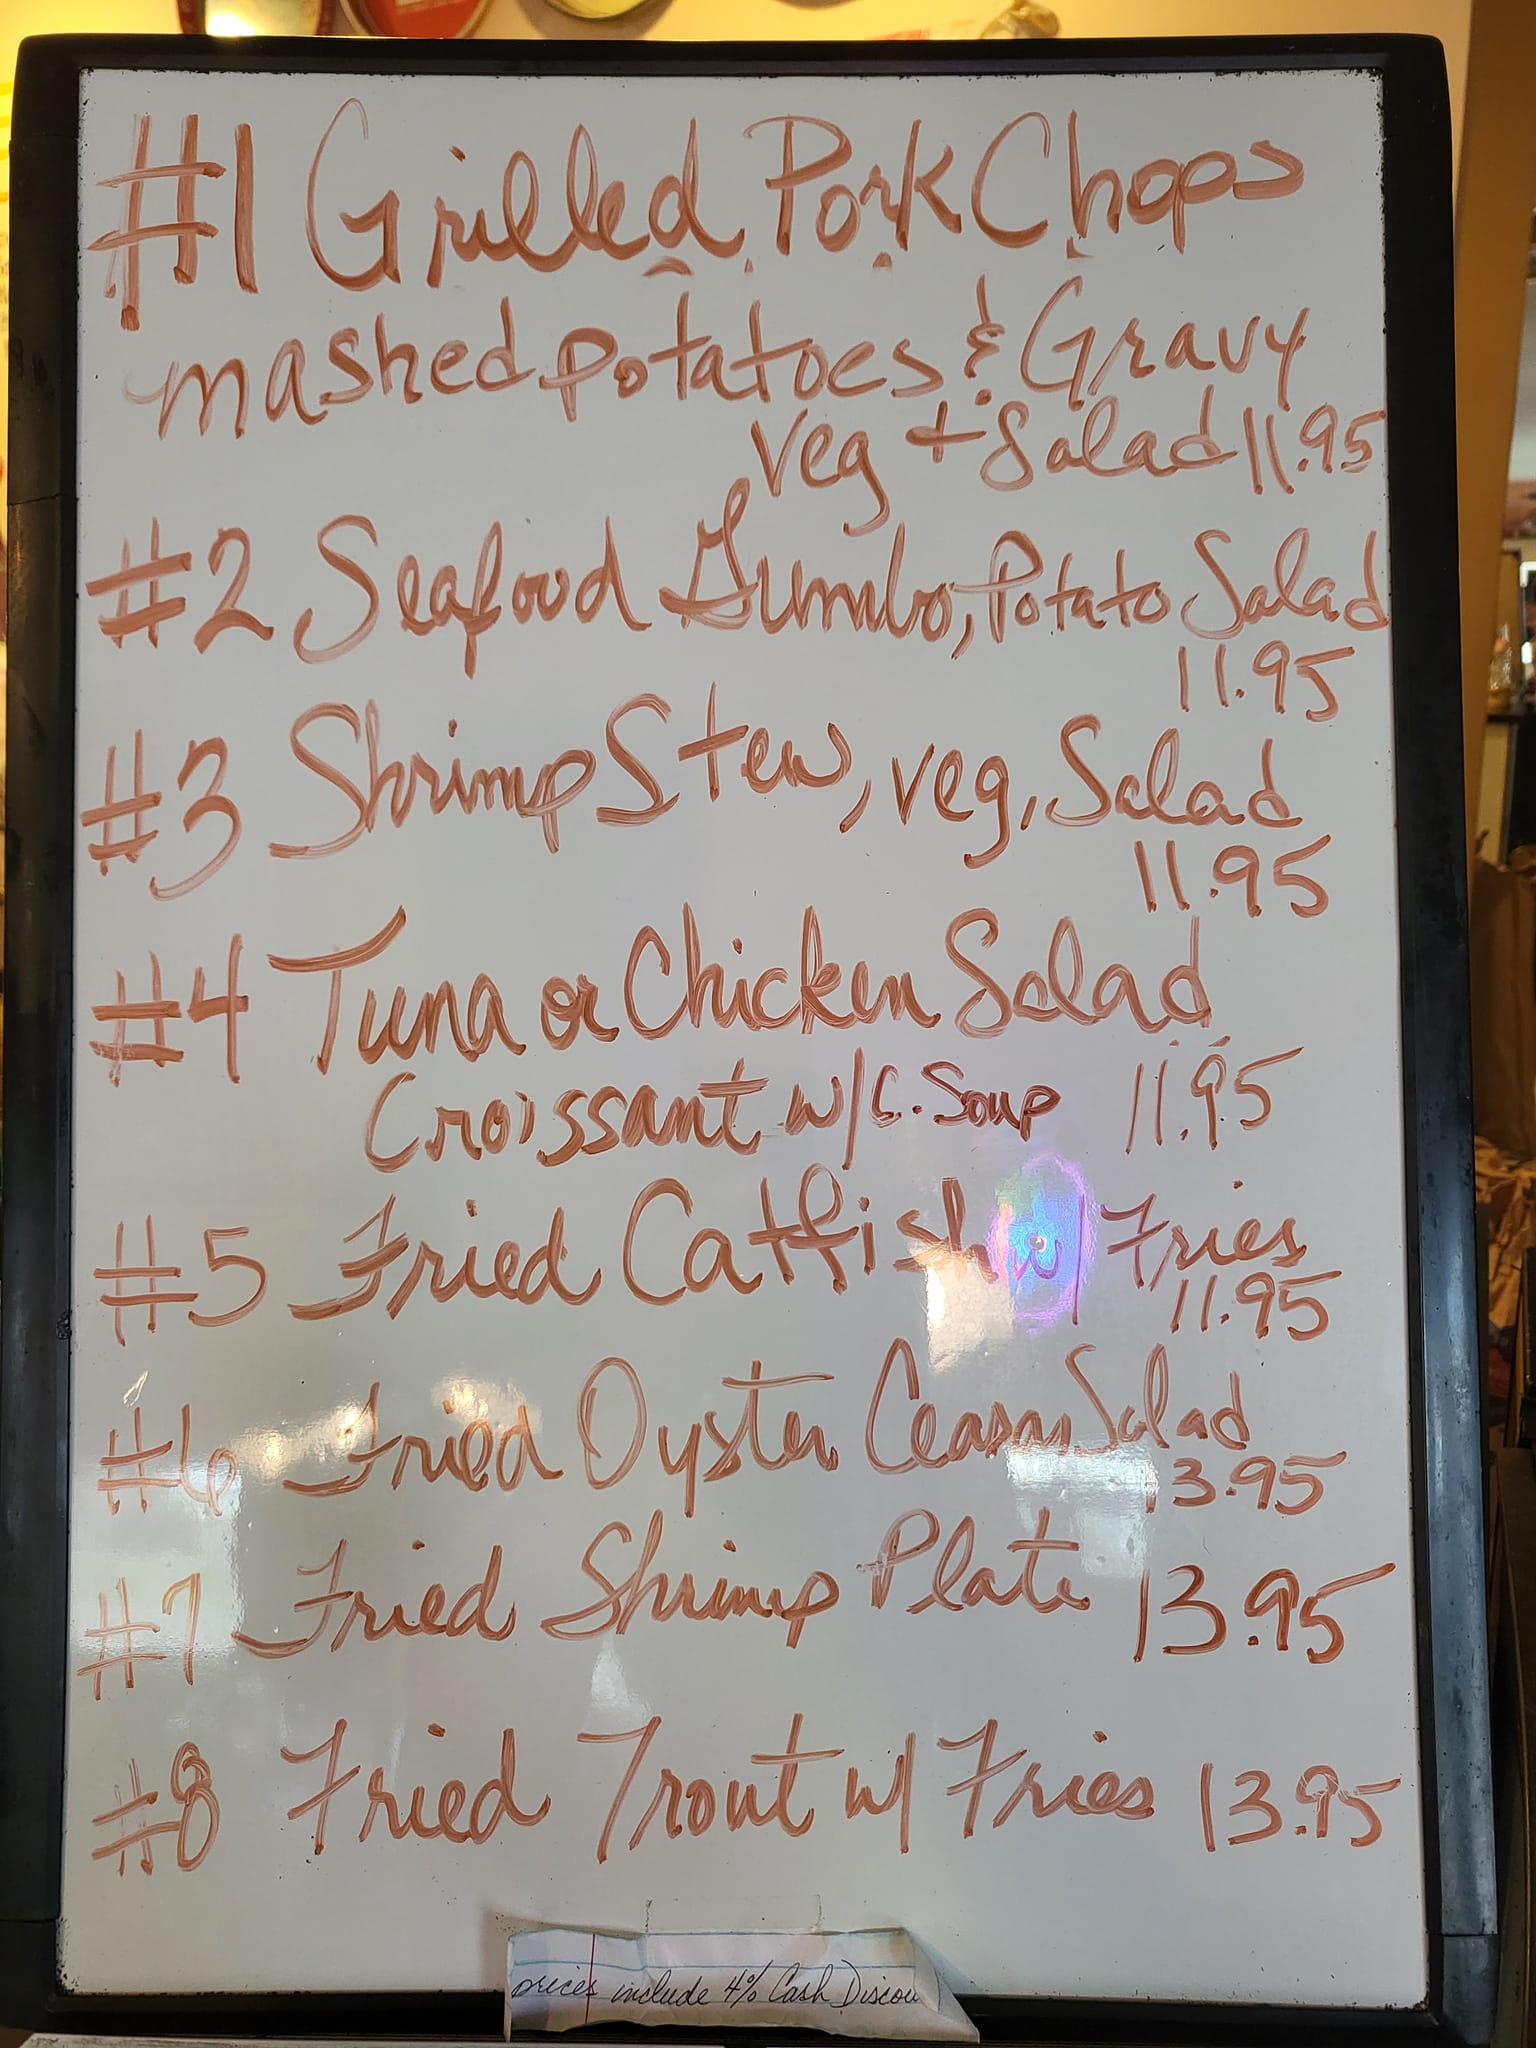 #1 Grilled Pork Chops
mashed potatoes & Gravy
veg + Salad 11.95
#2 Seafood Gumbo, Potato Salad
11.95
#3 Shrimp Stew, veg, Salad
11.95
#4 Tuna or Chicken Salad
Croissant w/ C. Soup 11.95
#5 Fried Catfish w/ Fries
11.95
#6 Fried Oyster Ceasar Salad
13.95
#7 Fried Shrimp Plate 13.95
#8 Fried Trout w/ Fries 13.95
prices include 4% Cash Discou